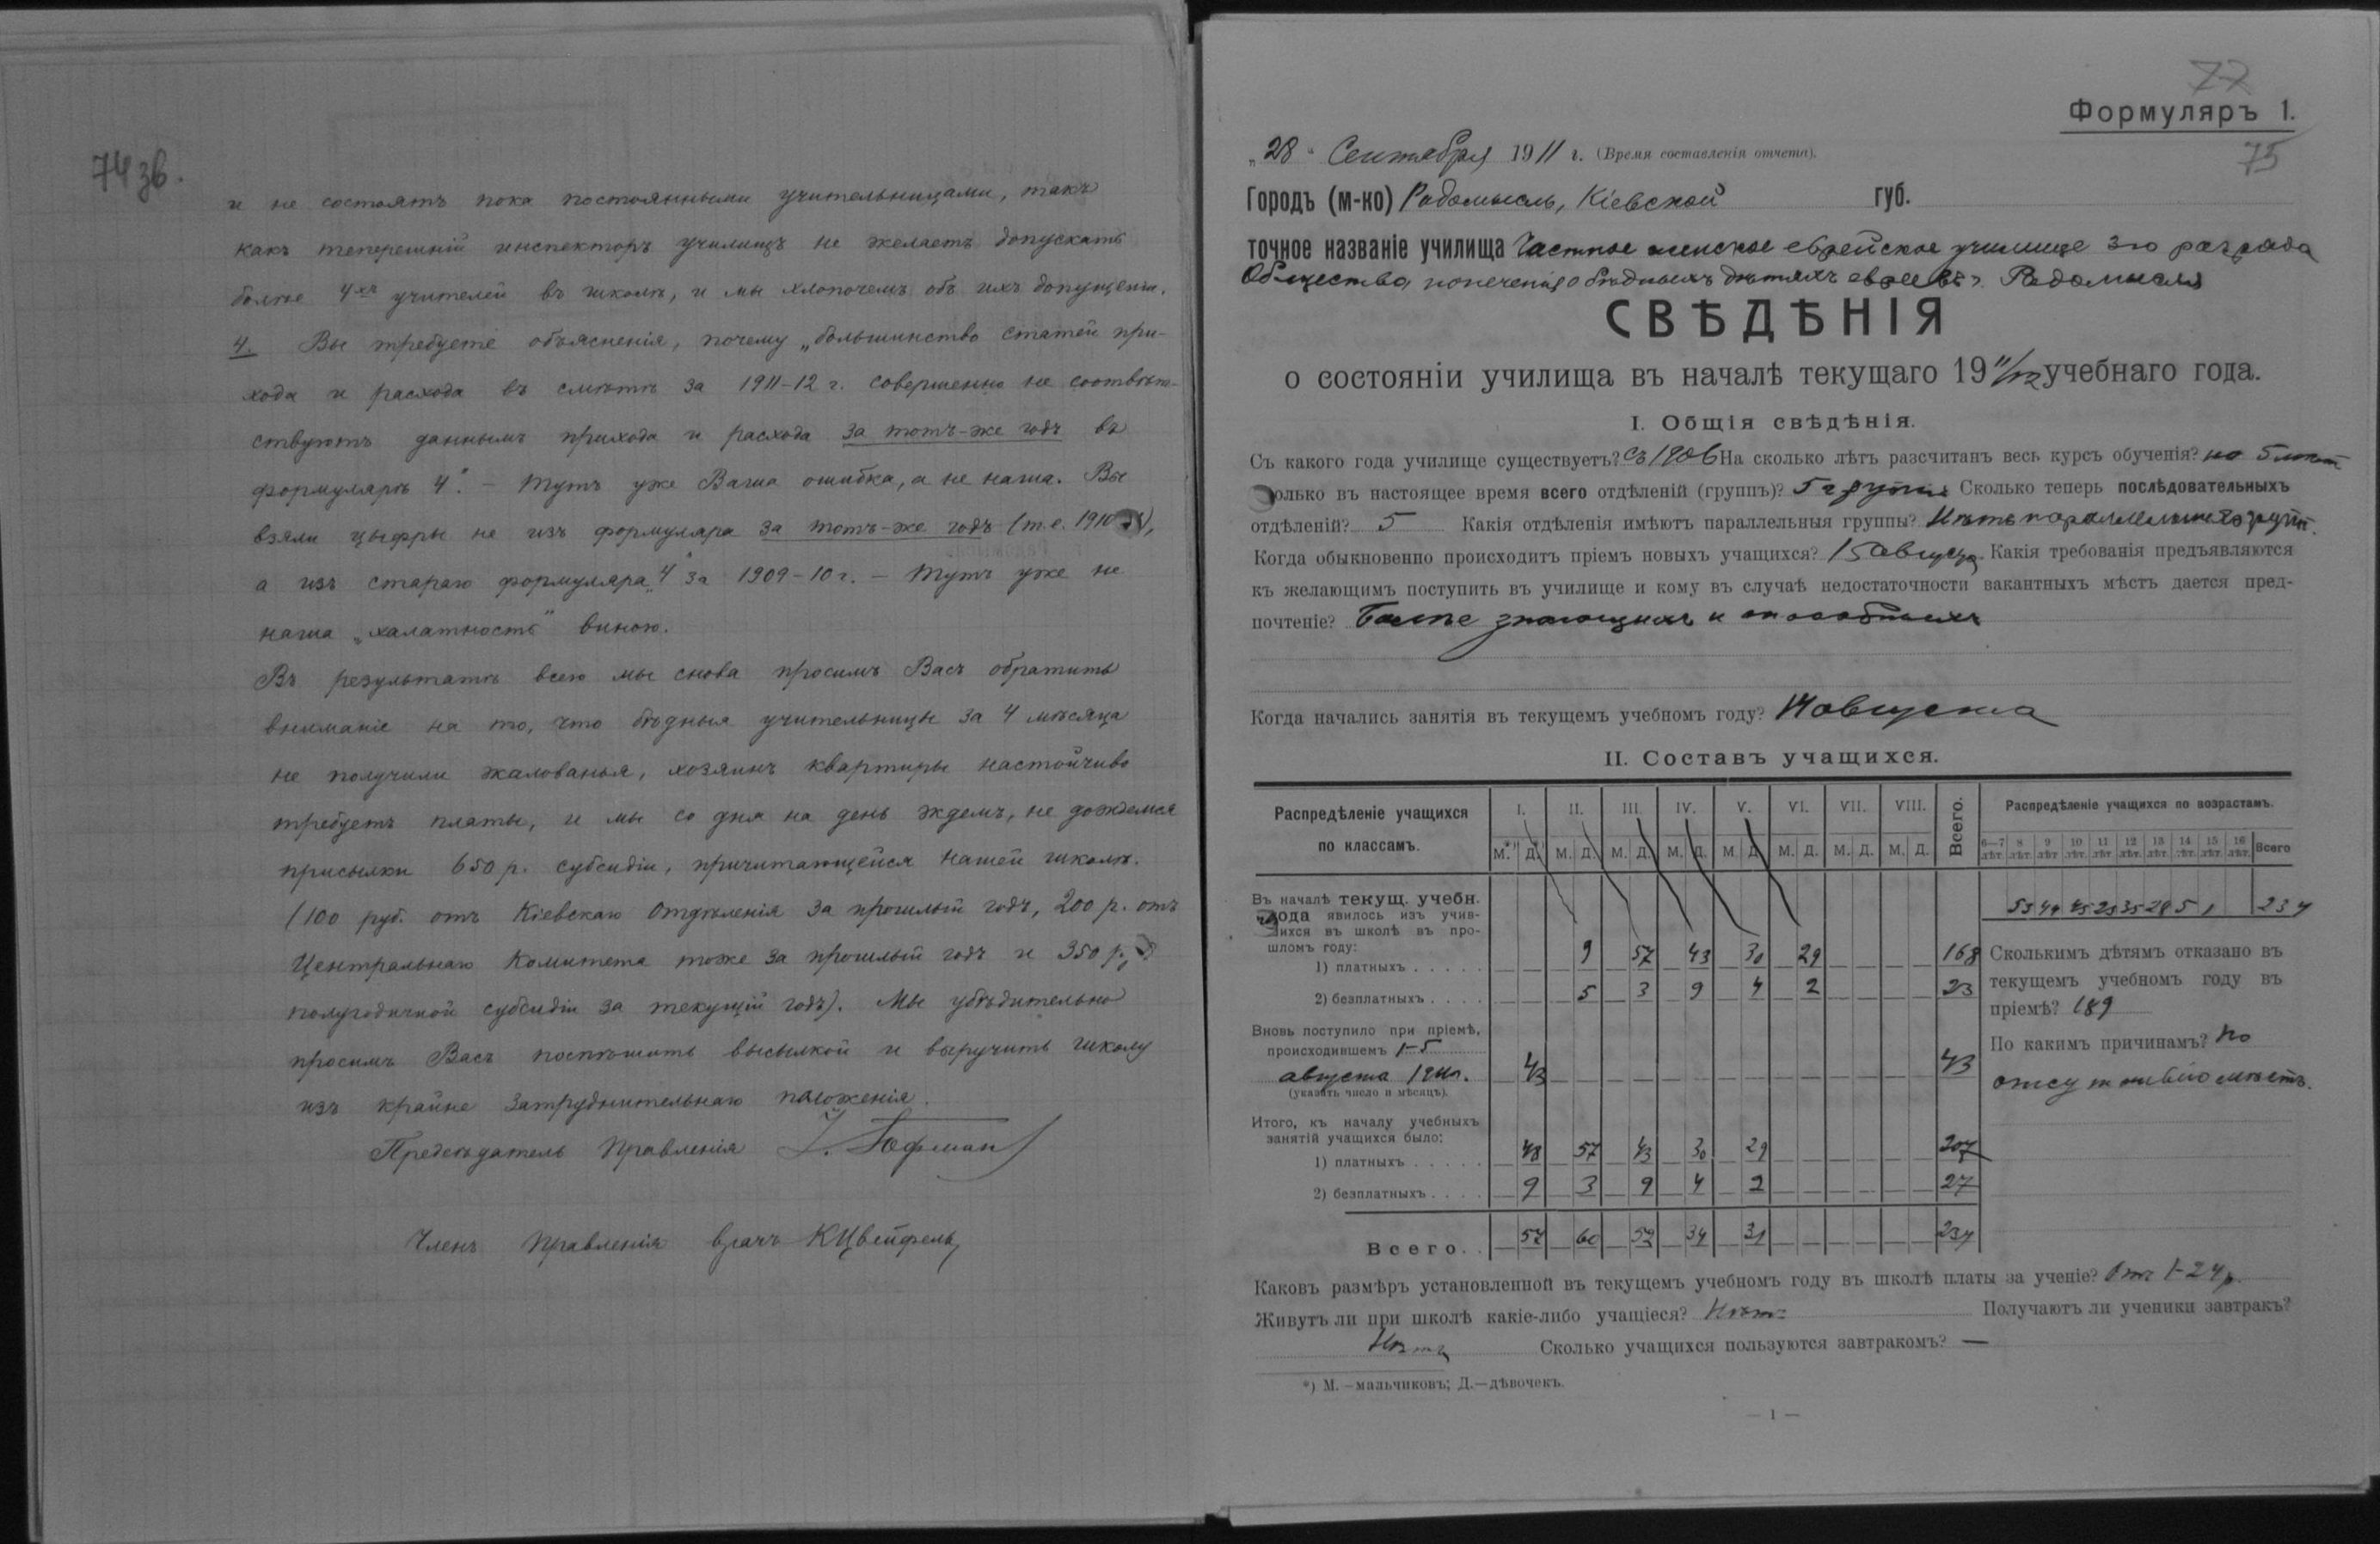 74 зв.
и не состоятъ пока постоянными учительницами, такъ
какъ теперешній инспекторъ училищъ не желаетъ допускать
болѣе 4хъ учителей въ школѣ, и мы хлопочемъ объ ихъ допущеніи.
4. Вы требуете объясненія, почему „большинство статей при-
хода и расхода въ смѣтѣ за 1911-12 г. совершенно не соотвѣт-
ствуютъ даннымъ прихода и расхода за тотъ-же годъ въ
формулярѣ 4". – Тутъ уже Ваша ошибка, а не наша. Вы
взяли цыфры не изъ формуляра за тотъ-же годъ (т.е. 1910
а изъ стараго формуляра „4" за 1909-10 г. – Тутъ уже не
наша „халатность" виною.
Въ результатѣ всего мы снова просимъ Васъ обратить
вниманіе на то, что бѣдныя учительницы за 4 мѣсяца
не получили жалованья, хозяинъ квартиры настойчиво
требуетъ платы, и мы со дня на день ждемъ, не дождемся
присылки 650 р. субсидіи, причитающейся нашей школѣ.
(100 руб. отъ Кіевскаго Отдѣленія за прошлый годъ, 200 р. отъ
Центральнаго Комитета тоже за прошлый годъ и 350 р.
полугодичной субсидіи за текущій годъ). Мы убѣдительно
просимъ Васъ поспѣшить высылкой и выручить школу
изъ крайне затруднительнаго положенія.
Предсѣдатель Правленія Гофман
Членъ Правленія врачъ КЦвейфель
77
Формуляръ 1.
75
„28" Сентября 1911 г. (Время составленія отчета).
Городъ (м-ко) Радомысль, Кіевской губ.
точное названіе училища Частное женское еврейское училище 3го разряда
Общества попеченія о бѣдныхъ дѣтяхъ евреевъ г. Радомысля
СВѢДѢНІЯ
о состояніи училища въ началѣ текущаго 19 11/12 учебнаго года.
I. Общія свѣдѣнія.
Съ какого года училище существуетъ? Съ 1906 На сколько лѣтъ разсчитанъ весь курсъ обученія? на 5 лѣтъ
олько въ настоящее время всего отдѣленій (группъ)? 5 группъ Сколько теперь послѣдовательныхъ
отдѣленій? 5 Какія отдѣленія имѣютъ параллельныя группы? Нѣтъ параллельныхъ групп.
Когда обыкновенно происходитъ пріемъ новыхъ учащихся? 15 августа Какія требованія предъявляются
къ желающимъ поступить въ училище и кому въ случаѣ недостаточности вакантныхъ мѣстъ дается пред-
почтеніе? Болѣе знающихъ и способныхъ
Когда начались занятія въ текущемъ учебномъ году? августа
II. Составъ учащихся.
Распредѣленіе учащихся по классамъ. I. II. III. IV. V. VI. VII. VIII. Всего. Распредѣленіе учащихся по возрастамъ.
М.*) Д.*) М. Д. М. Д. М. Д. М. Д. М. Д. М. Д. М. Д. 6–7 лѣт. 8 лѣт. 9 лѣт. 10 лѣт. 11 лѣт. 12 лѣт. 13 лѣт. 14 лѣт. 15 лѣт. 16 лѣт. Всего
Въ началѣ текущ. учебн.
года явилось изъ учив-
шихся въ школѣ въ про-
шломъ году:
1) платныхъ 9 57 43 30 29 168
2) безплатныхъ 5 3 9 4 2 23
Вновь поступило при пріемѣ,
происходившемъ 1-5
августа 1911г. 43 43
(указать число и мѣсяцъ).
Итого, къ началу учебныхъ
занятій учащихся было:
1) платныхъ 48 57 43 30 29 207
2) безплатныхъ 9 3 9 4 2 27
Всего 57 60 52 34 31 234
234
Сколькимъ дѣтямъ отказано въ
текущемъ учебномъ году въ
пріемѣ? 189
По какимъ причинамъ? По
отсутствію мѣстъ.
Каковъ размѣръ установленной въ текущемъ учебномъ году въ школѣ платы за ученіе? Отъ 1-24р.
Живутъ ли при школѣ какіе-либо учащіеся? Нѣтъ Получаютъ ли ученики завтракъ?
Нѣтъ Сколько учащихся пользуются завтракомъ? —
*) М.—мальчиковъ; Д.—дѣвочекъ.
— 1 —